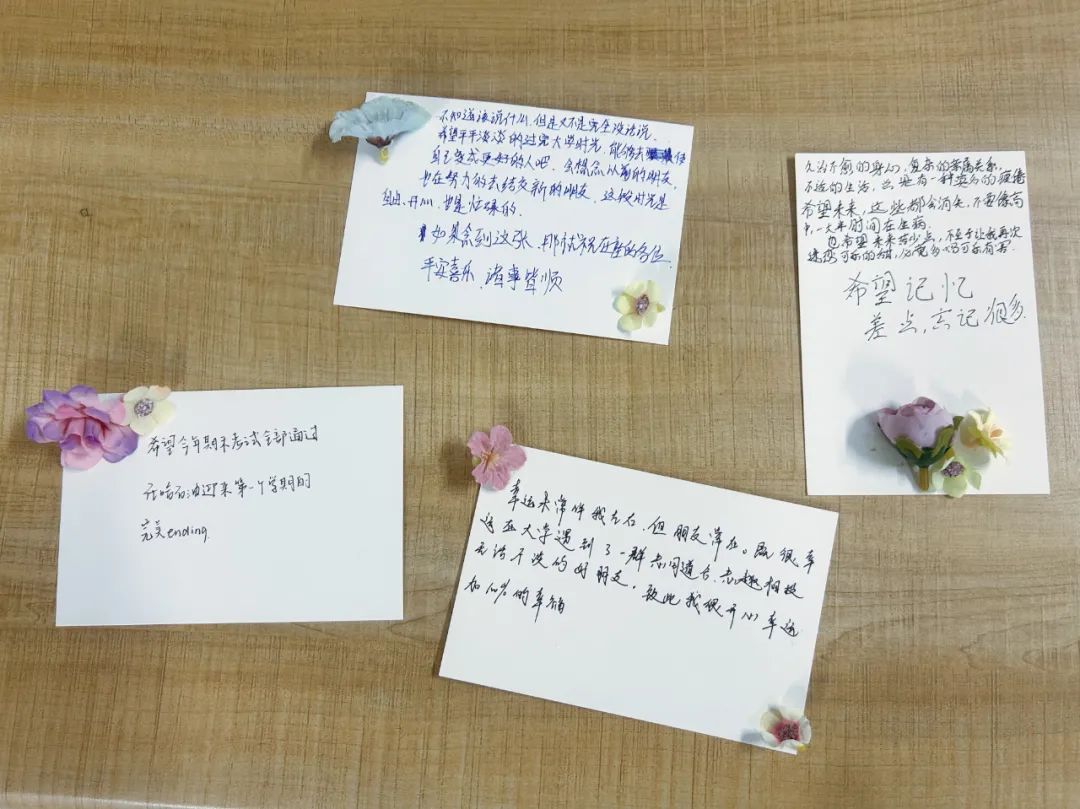 不知道该说什么,但是又不是完全没话说.
希望平平淡淡的过完大学时光,能够去使
自己变成更好的人吧.会想念以前的朋友,
也在努力的去结交新的朋友.这段时光是
自由、开心、也是忙碌的.
如果念到这张,那就祝在座的各位
平安喜乐,诸事皆顺
久治不愈的身心,复杂的亲属关系,
不适的生活,总是有一种莫名的疲倦
希望未来,这些都会消失,不要像高
中,一大半时间在生病.
也希望未来苦少点,不至于让我再次
可乐的甜,必竟多喝可乐有害.
希望记忆
差点,忘记很多.
希望今年期末考试全部通过
在哈石油迎来第一个学期的
完美ending.
幸运未常伴我左右,但朋友常在。我很幸
运在大学遇到了一群志同道合、志趣相投
无话不谈的好朋友,致此我很开心幸运
加100%的幸福